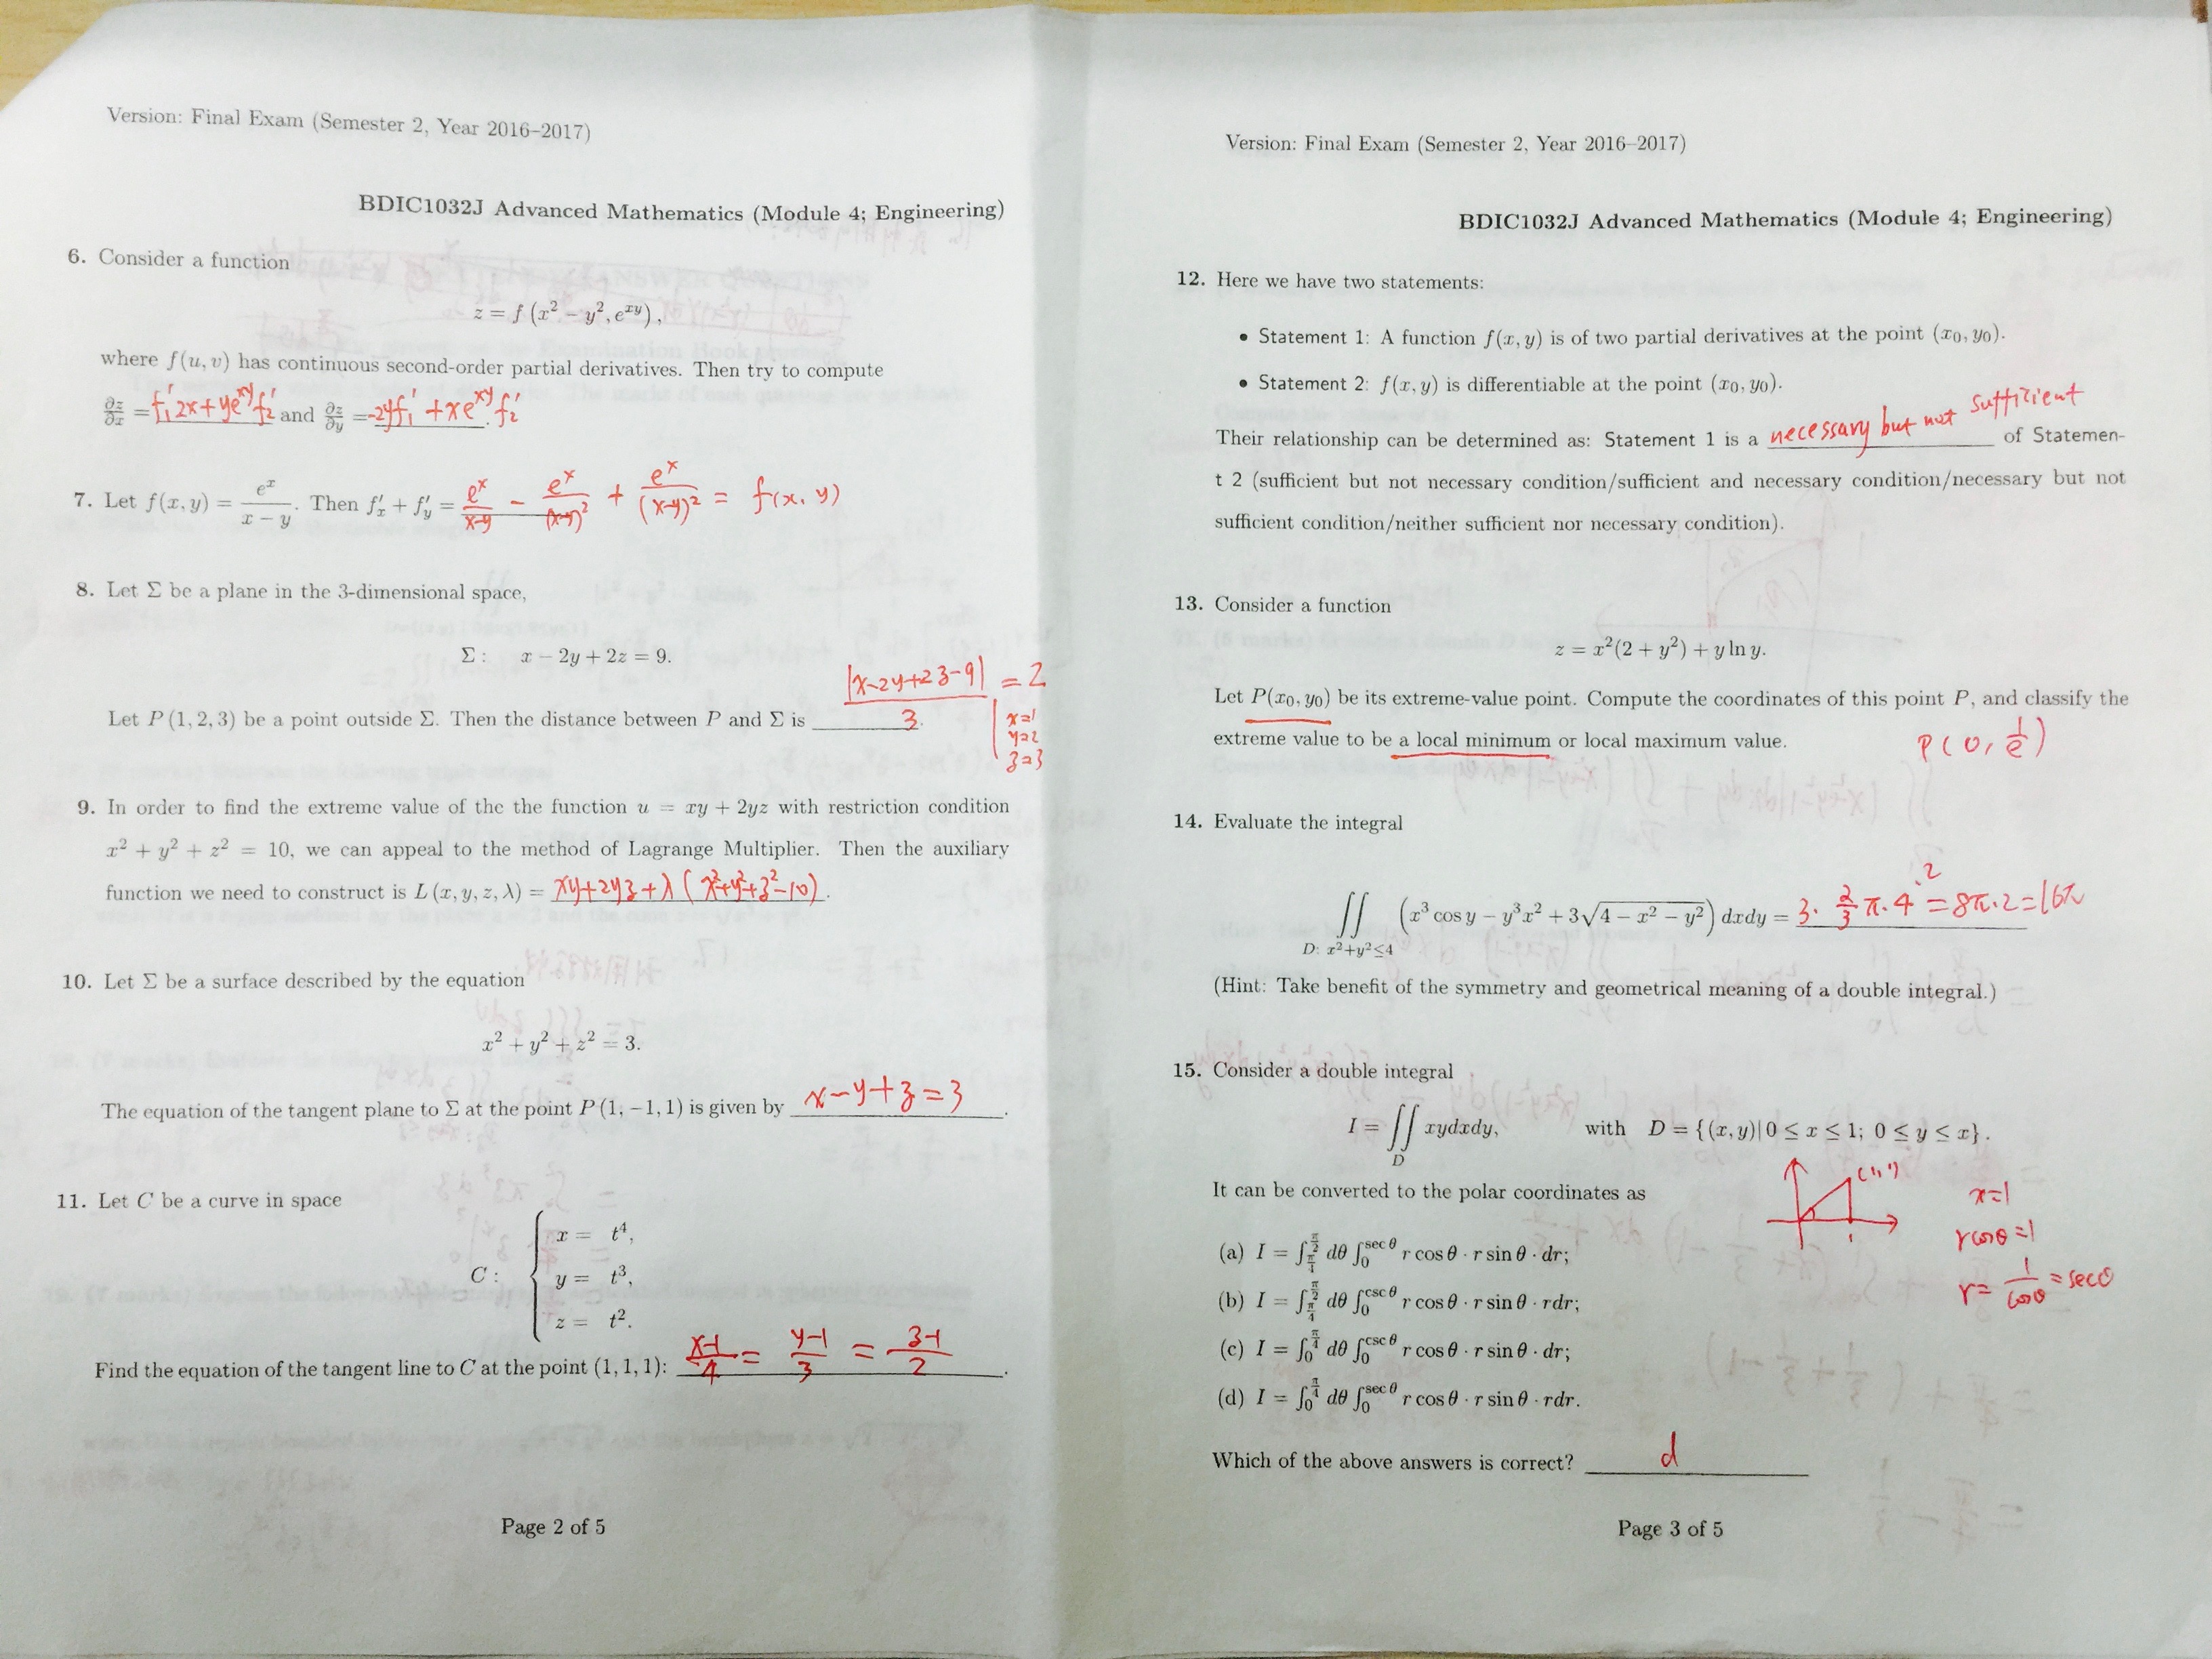 Version: Final Exam (Semester 2, Year 2016–2017)
BDIC1032J Advanced Mathematics (Module 4; Engineering)
6. Consider a function
z = f (x² − y², e^{xy}),
where f(u, v) has continuous second-order partial derivatives. Then try to compute
∂z/∂x = f₁′2x + ye^{xy}f₂′ and ∂z/∂y = -2yf₁′ + xe^{xy}f₂′.
7. Let f(x, y) = e^x/(x − y). Then f′ₓ + f′ᵧ = e^x/(x-y) − e^x/(x-y)² + e^x/(x-y)² = f(x, y)
8. Let Σ be a plane in the 3-dimensional space,
Σ : x − 2y + 2z = 9.
|x-2y+2z-9|/3 = 2
Let P (1, 2, 3) be a point outside Σ. Then the distance between P and Σ is 3.
x=1
y=2
z=3
9. In order to find the extreme value of the the function u = xy + 2yz with restriction condition
x² + y² + z² = 10, we can appeal to the method of Lagrange Multiplier. Then the auxiliary
function we need to construct is L (x, y, z, λ) = xy+2yz+λ(x²+y²+z²-10).
10. Let Σ be a surface described by the equation
x² + y² + z² = 3.
The equation of the tangent plane to Σ at the point P (1, −1, 1) is given by x-y+z=3.
11. Let C be a curve in space
x = t⁴,
C : y = t³,
z = t².
Find the equation of the tangent line to C at the point (1, 1, 1): (x-1)/4 = (y-1)/3 = (z-1)/2.
Page 2 of 5
Version: Final Exam (Semester 2, Year 2016–2017)
BDIC1032J Advanced Mathematics (Module 4; Engineering)
12. Here we have two statements:
• Statement 1: A function f(x, y) is of two partial derivatives at the point (x₀, y₀).
• Statement 2: f(x, y) is differentiable at the point (x₀, y₀).
Their relationship can be determined as: Statement 1 is a necessary but not sufficient of Statemen-
t 2 (sufficient but not necessary condition/sufficient and necessary condition/necessary but not
sufficient condition/neither sufficient nor necessary condition).
13. Consider a function
z = x²(2 + y²) + y ln y.
Let P(x₀, y₀) be its extreme-value point. Compute the coordinates of this point P, and classify the
extreme value to be a local minimum or local maximum value. P(0, 1/e)
14. Evaluate the integral
∬ (x³ cos y − y³x² + 3√(4 − x² − y²)) dxdy = 3·2/3 π·4·2 = 8π·2=16π
D: x²+y²≤4
(Hint: Take benefit of the symmetry and geometrical meaning of a double integral.)
15. Consider a double integral
I = ∬_D xydxdy, with D = {(x, y)| 0 ≤ x ≤ 1; 0 ≤ y ≤ x}.
(1,1)
1
It can be converted to the polar coordinates as
x=1
rcosθ=1
r= 1/cosθ = secθ
(a) I = ∫_{π/4}^{π/2} dθ ∫_0^{sec θ} r cos θ · r sin θ · dr;
(b) I = ∫_{π/4}^{π/2} dθ ∫_0^{csc θ} r cos θ · r sin θ · rdr;
(c) I = ∫_0^{π/4} dθ ∫_0^{csc θ} r cos θ · r sin θ · dr;
(d) I = ∫_0^{π/4} dθ ∫_0^{sec θ} r cos θ · r sin θ · rdr.
Which of the above answers is correct? d
Page 3 of 5